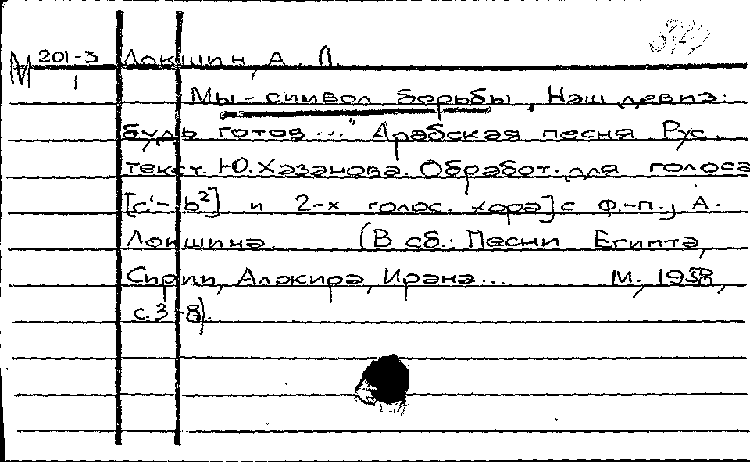 М 201-3 Локшин, А. Л.
1
Мы - символ борьбы, Наш девиз:
будь готов..." Арабская песня Рус.
текст Ю. Хазанова. Обработ. для голоса
[c'- b²] и 2-х голос. хора] с ф.-п., А.
Локшина. (В сб.: Песни Египта,
Сирии, Алжира, Ирана... М., 1958,
с. 3-8).